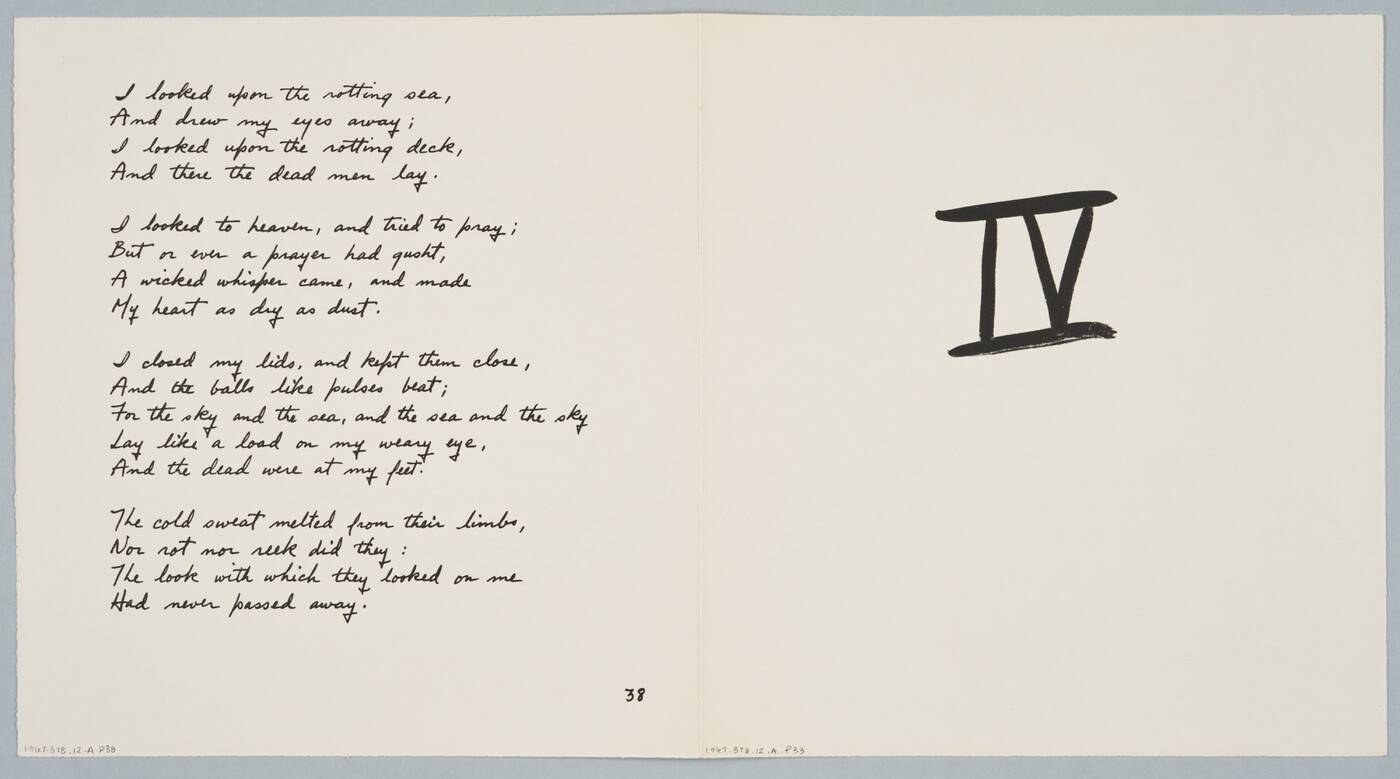 I looked upon the rotting sea,
And drew my eyes away;
I looked upon the rotting deck,
And there the dead men lay.
I looked to heaven, and tried to pray;
But or ever a prayer had gusht,
A wicked whisper came, and made
My heart as dry as dust.
I closed my lids, and kept them close,
And the balls like pulses beat;
For the sky and the sea, and the sea and the sky
Lay like a load on my weary eye,
And the dead were at my feet.
The cold sweat melted from their limbs,
Nor rot nor reek did they:
The look with which they looked on me
Had never passed away.
38
1967.378.12.A.P38
IV
1967.378.12.A.P33